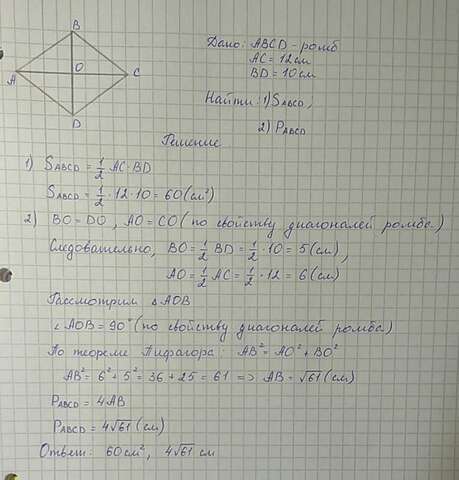 B
A
O
C
D
Дано: ABCD - ромб
AC = 12 см
BD = 10 см
Найти: 1) SABCD,
2) PABCD
Решение
1) SABCD = 1/2 AC · BD
SABCD = 1/2 · 12 · 10 = 60 (см²)
2) BO = DO, AO = CO (по свойству диагоналей ромба)
Следовательно, BO = 1/2 BD = 1/2 · 10 = 5 (см),
AO = 1/2 AC = 1/2 · 12 = 6 (см)
Рассмотрим △AOB
∠AOB = 90° (по свойству диагоналей ромба)
По теореме Пифагора: AB² = AO² + BO²
AB² = 6² + 5² = 36 + 25 = 61 => AB = √61 (см)
PABCD = 4AB
PABCD = 4√61 (см)
Ответ: 60 см², 4√61 см